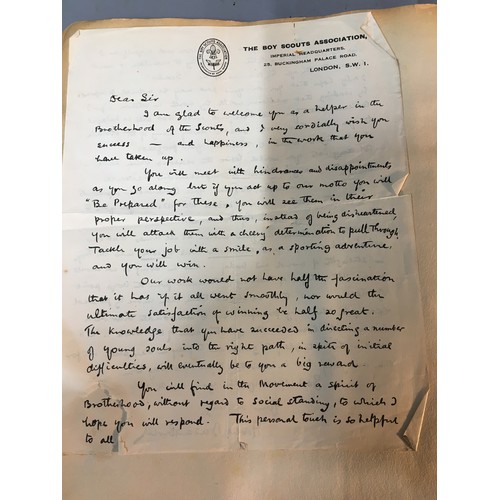 THE BOY SCOUTS ASSOCIATION,
IMPERIAL HEADQUARTERS,
25, BUCKINGHAM PALACE ROAD,
LONDON, S.W. 1.
Dear Sir
I am glad to welcome you as a helper in the
Brotherhood of the Scouts, and I very cordially wish you
success — and happiness, in the work that you
have taken up.
You will meet with hindrances and disappointments
as you go along but if you act up to our motto you will
"Be Prepared" for these, you will see them in their
proper perspective, and thus, instead of being disheartened
you will attack them with a cheery determination to pull through.
Tackle your job with a smile, as a sporting adventure,
and you will win.
Our work would not have half the fascination
that it has if it all went smoothly, nor would the
ultimate satisfaction of winning be half so great.
The knowledge that you have succeeded in directing a number
of young souls into the right path, in spite of initial
difficulties, will eventually be to you a big reward.
You will find in the Movement a spirit of
Brotherhood, without regard to social standing, to which I
hope you will respond. This personal touch is so helpful
to all